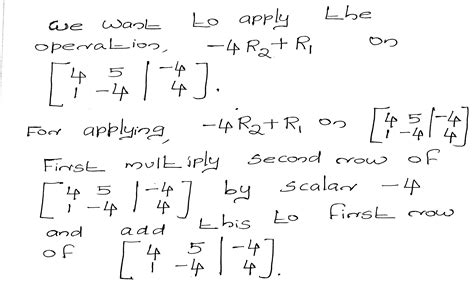 we want to apply the
operation, -4R₂+R₁ on
[4 5 | -4
1 -4 | 4].
For applying, -4R₂+R₁ on [4 5 | -4
1 -4 | 4]
First multiply second row of
[4 5 | -4
1 -4 | 4] by scalar -4
and add this to first row
of [4 5 | -4
1 -4 | 4].